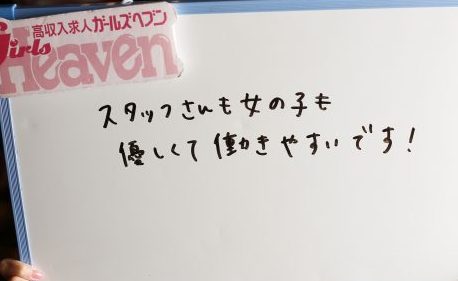 高収入求人ガールズヘブン
Girls
Heaven
スタッフさんも女の子も
優しくて働きやすいです!